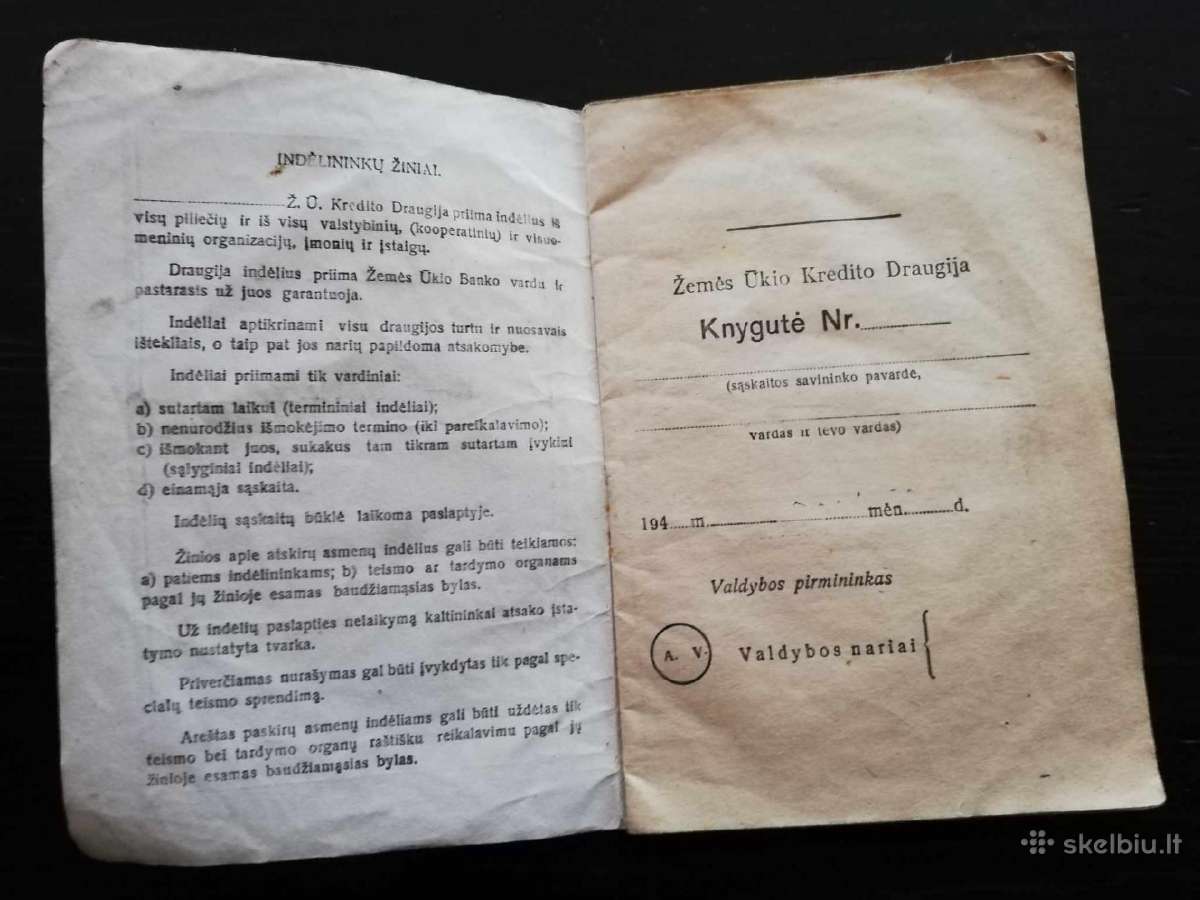 INDĖLININKŲ ŽINIAI.
Ž. Ū. Kredito Draugija priima indėlius iš
visų piliečių ir iš visų valstybinių, (kooperatinių) ir visuo-
meninių organizacijų, įmonių ir įstaigų.
Draugija indėlius priima Žemės Ūkio Banko vardu ir
pastarasis už juos garantuoja.
Indėliai aptikrinami visu draugijos turtu ir nuosavais
ištekliais, o taip pat jos narių papildoma atsakomybe.
Indėliai priimami tik vardiniai:
a) sutartam laikui (terminin​iai indėliai);
b) nenurodžius išmokėjimo termino (iki pareikalavimo);
c) išmokant juos, sukakus tam tikram sutartam įvykiui
(sąlyginiai indėliai);
d) einamąja sąskaita.
Indėlių sąskaitų būklė laikoma paslaptyje.
Žinios apie atskirų asmenų indėlius gali būti teikiamos:
a) patiems indėlininkams; b) teismo ar tardymo organams
pagal jų žinioje esamas baudžiamąsias bylas.
Už indėlių paslapties nelaikymą kaltininkai atsako įsta-
tymo nustatyta tvarka.
Priverčiamas nurašymas gal būti įvykdytas tik pagal spe-
cialų teismo sprendimą.
Areštas paskirų asmenų indėliams gali būti uždėtas tik
teismo bei tardymo organų raštišku reikalavimu pagal jų
žinioje esamas baudžiamąsias bylas.
Žemės Ūkio Kredito Draugija
Knygutė Nr.
(sąskaitos savininko pavardė,
vardas ir tėvo vardas)
194 m. mėn. d.
Valdybos pirmininkas
A. V. Valdybos nariai
skelbiu.lt